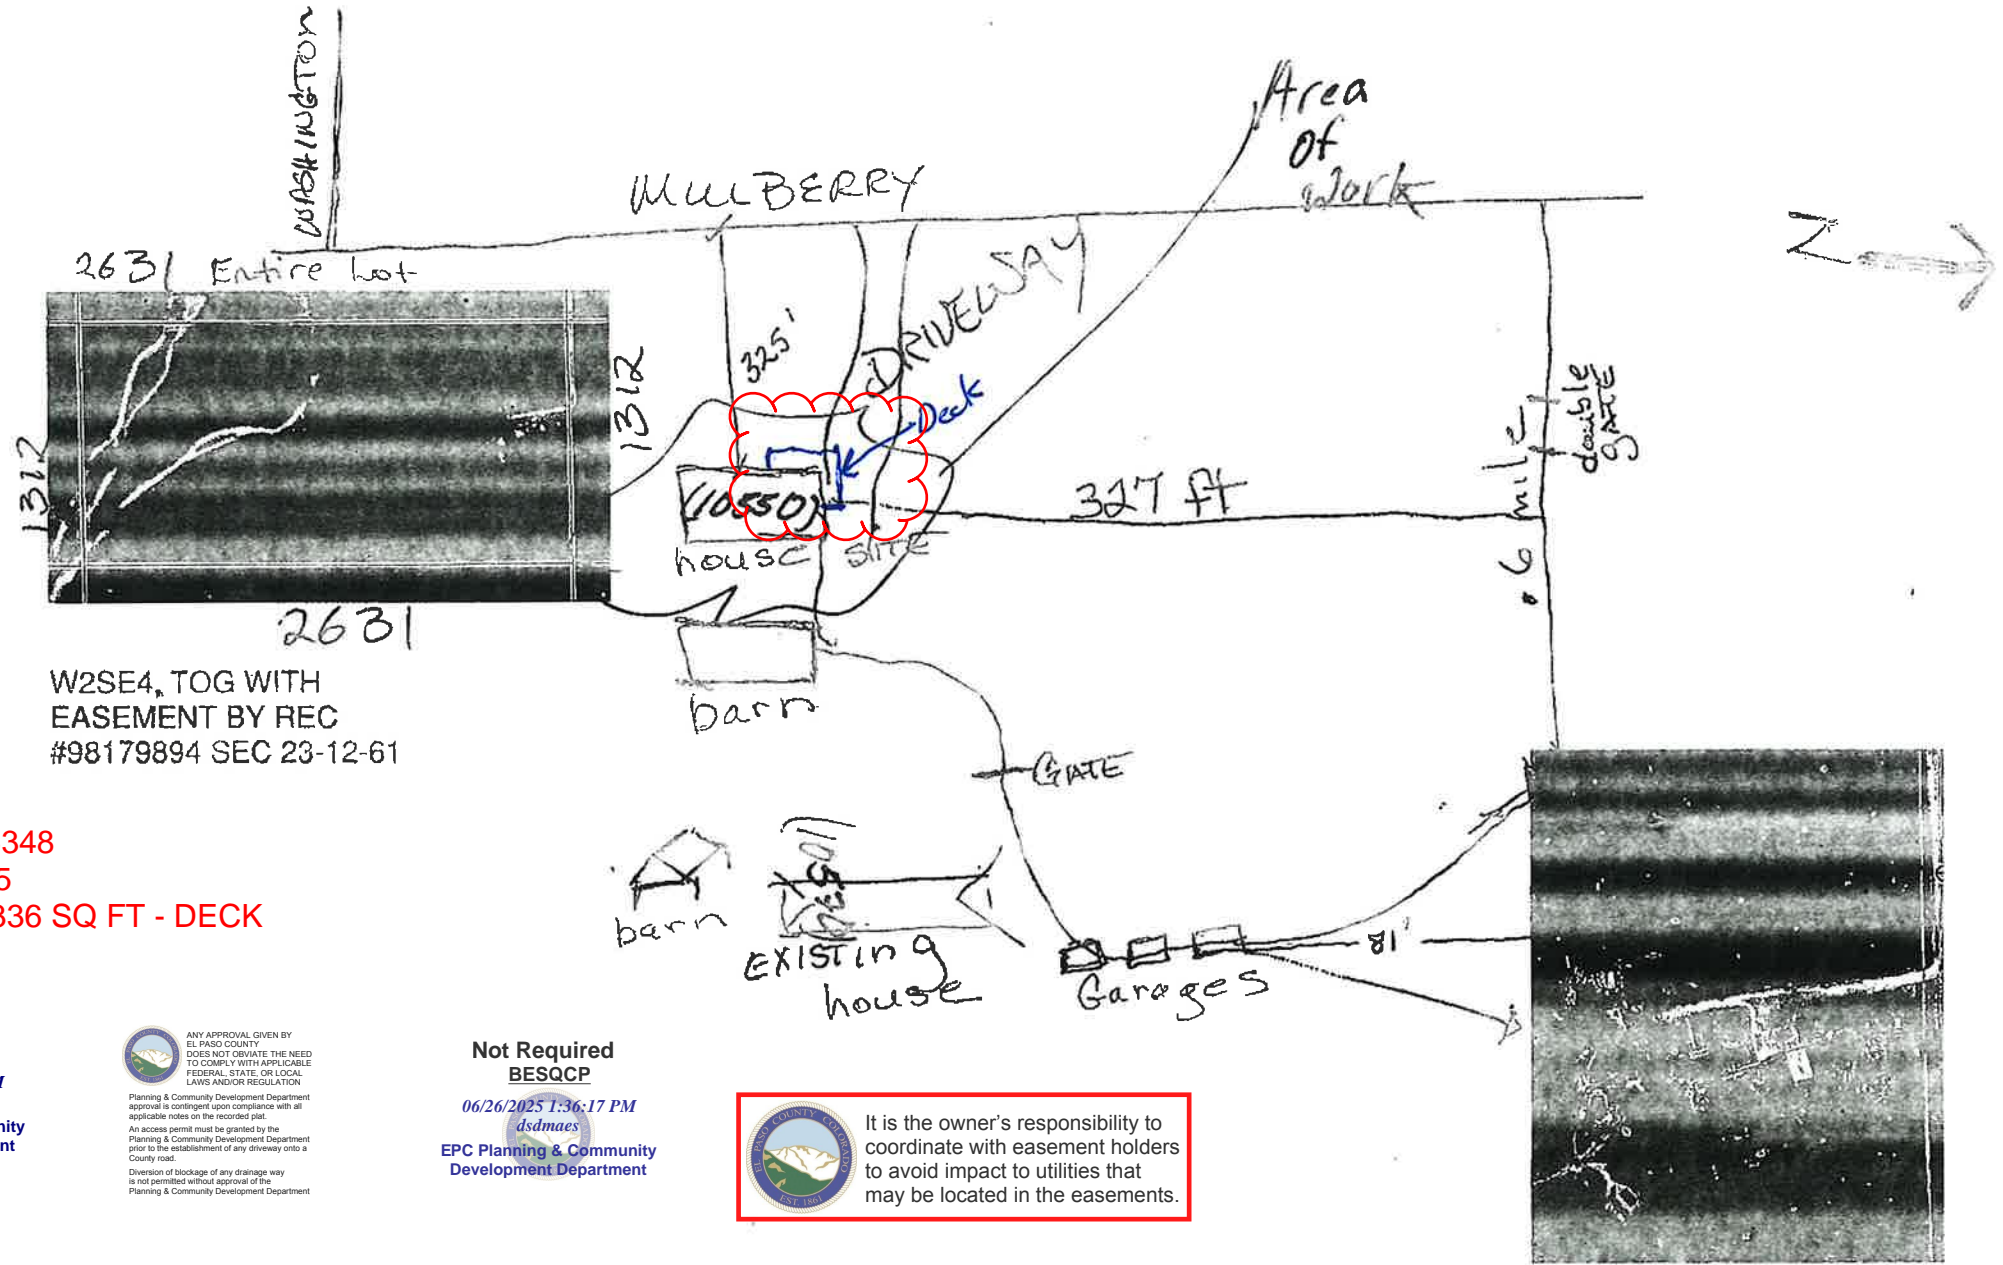 WASHINGTON
MULBERRY
Area
of
Work
N
2631 Entire Lot
1312
1312
2631
325'
DRIVEWAY
Deck
(10550)
house
SITE
327 ft
double
gate
.6 mile
barn
W2SE4, TOG WITH
EASEMENT BY REC
#98179894 SEC 23-12-61
GATE
348
5
336 SQ FT - DECK
barn
EXISTING
house
Garages
81'
ANY APPROVAL GIVEN BY
EL PASO COUNTY
DOES NOT OBVIATE THE NEED
TO COMPLY WITH APPLICABLE
FEDERAL, STATE, OR LOCAL
LAWS AND/OR REGULATION
Planning & Community Development Department
approval is contingent upon compliance with all
applicable notes on the recorded plat.
An access permit must be granted by the
Planning & Community Development Department
prior to the establishment of any driveway onto a
County road.
Diversion of blockage of any drainage way
is not permitted without approval of the
Planning & Community Development Department
nity
nt
Not Required
BESQCP
06/26/2025 1:36:17 PM
dsdmaes
EPC Planning & Community
Development Department
EL PASO COUNTY COLORADO
EST. 1861
It is the owner's responsibility to
coordinate with easement holders
to avoid impact to utilities that
may be located in the easements.